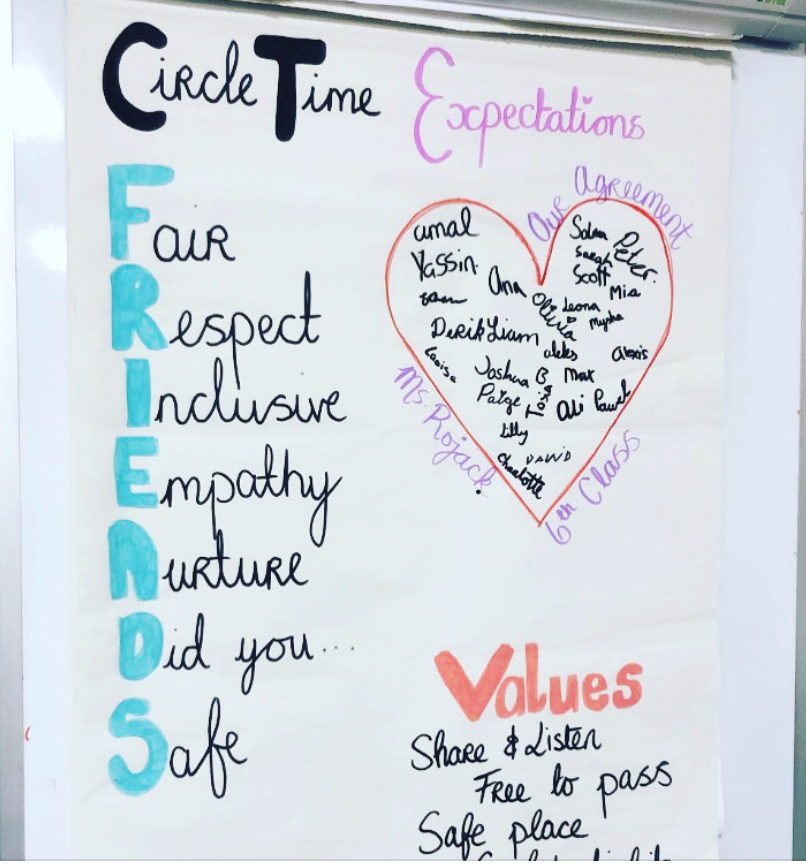 Circle Time Expectations
Fair
Respect
Inclusive
Empathy
Nurture
Did you...
Safe
Our Agreement
amal
Salma
Peter.
Yassin
Sarah
Scott
Ana
Mia
Olivia
Leona
Mysha
Derik Liam
aleks
Alexis
Louise
Joshua B
Max
Paige
Ali Pawel
Lilly
DAVID
Charlotte
Ms. Rojack.
6th Class
Values
Share & Listen
Free to pass
Safe place